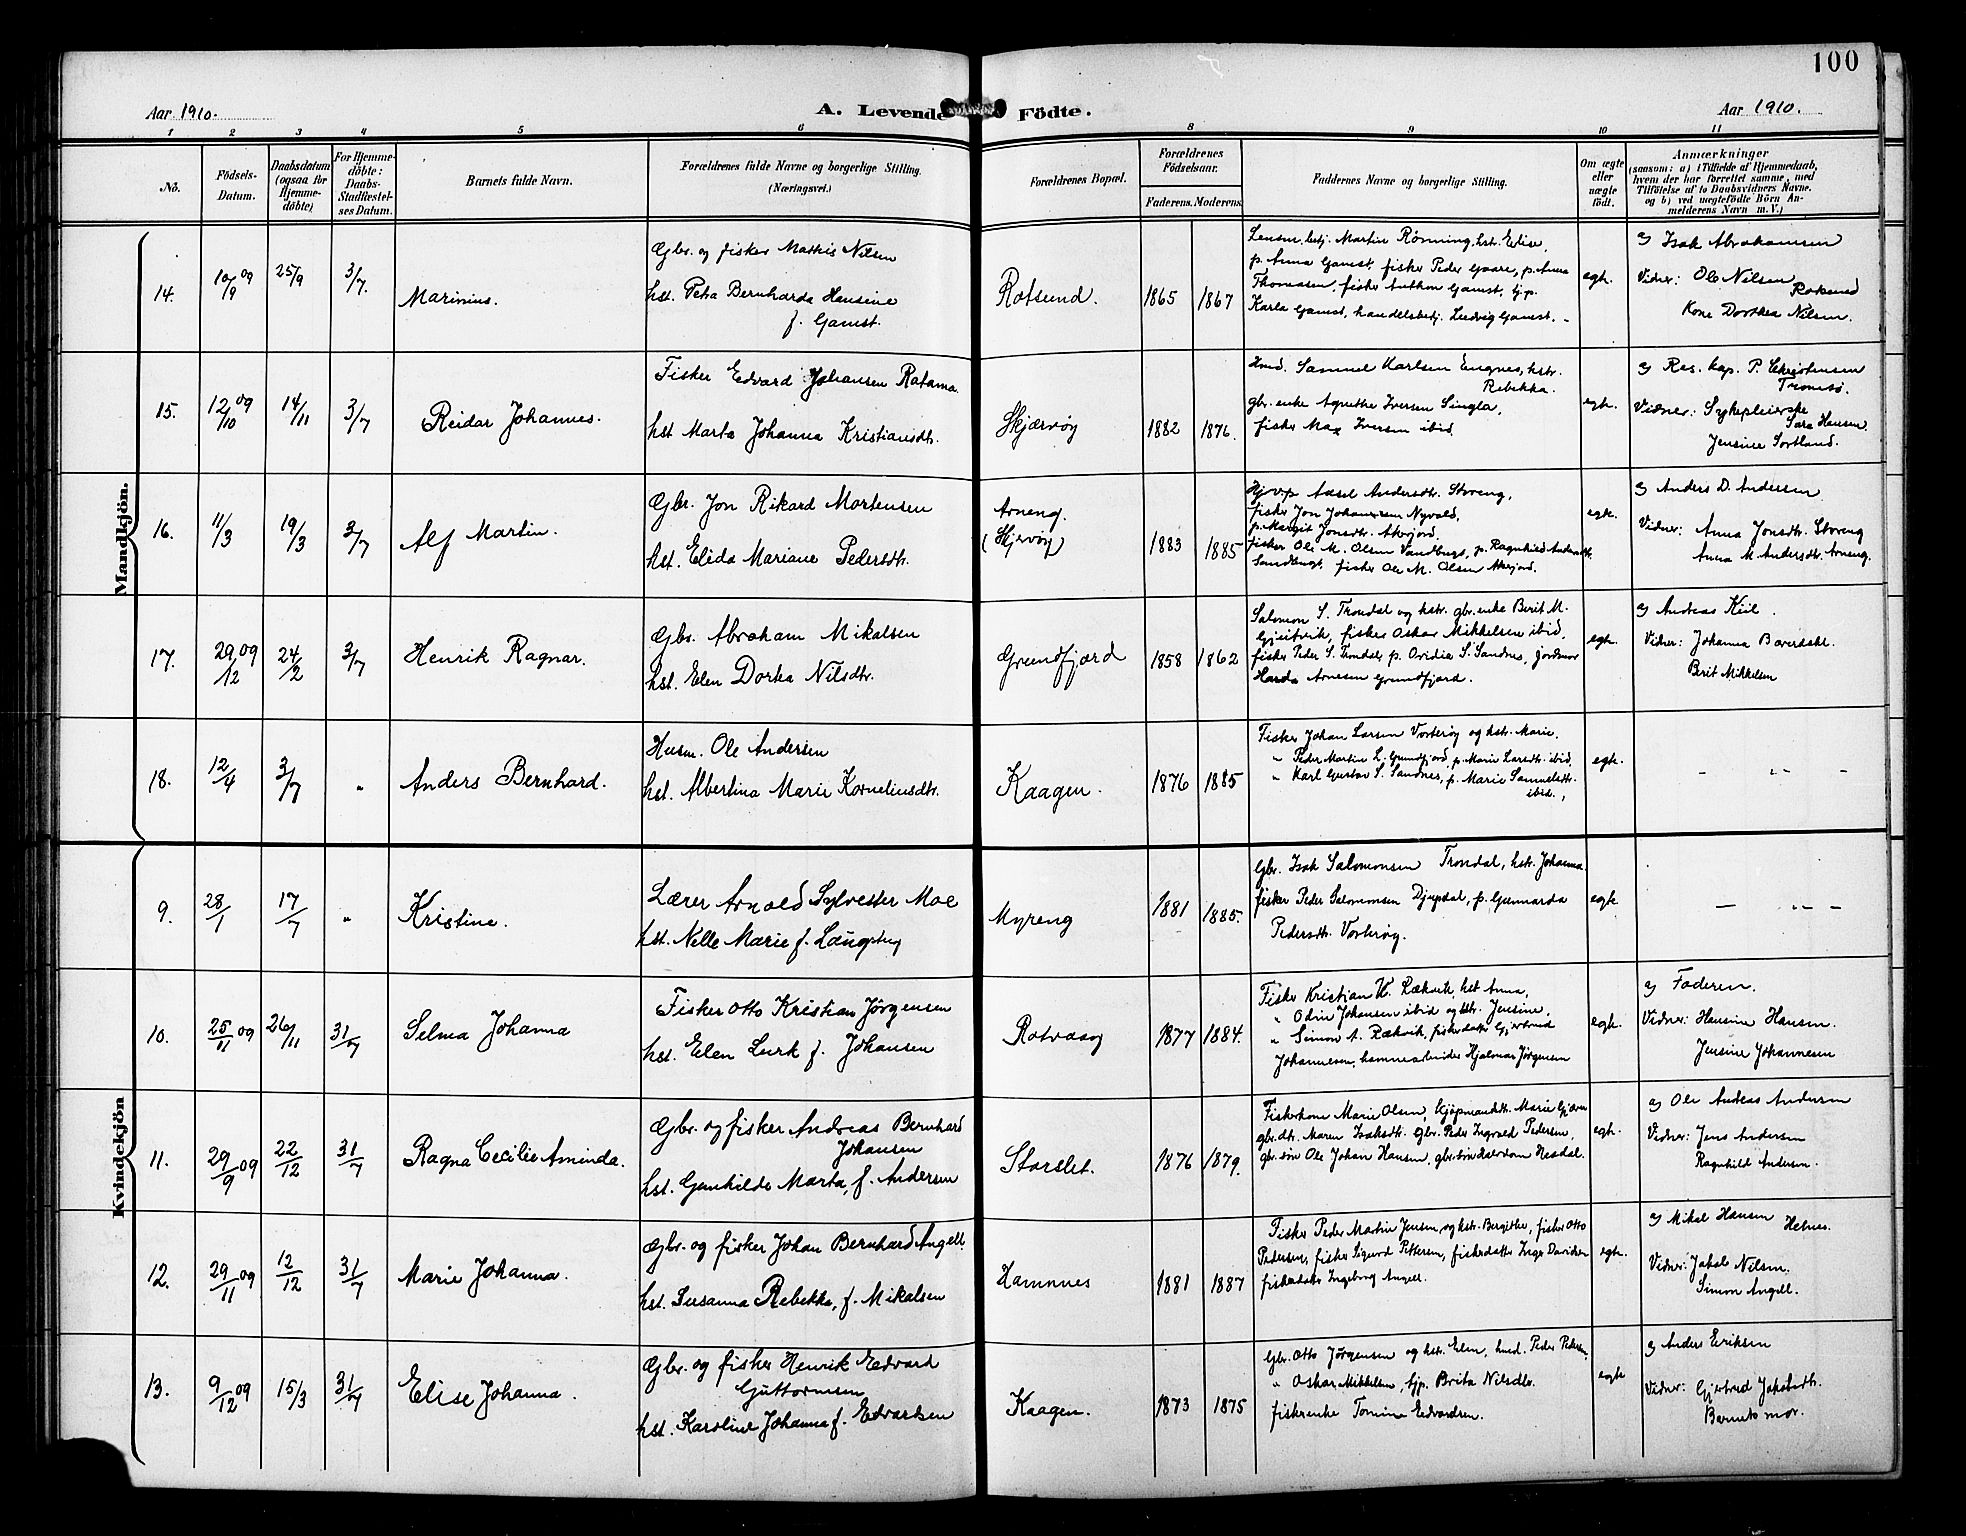 100
Aar 1910.
A. Levende Födte.
Aar 1910.
1 2 3 4 5 6 8 9 10 11
No.
Födsels-Datum.
Daabsdatum (ogsaa for Hjemme-döbte)
For Hjemme-döbte: Daabs-Stadfæstel-ses Datum.
Barnets fulde Navn.
Forældrenes fulde Navne og borgerlige Stilling. (Næringsvei.)
Forældrenes Bopæl.
Forældrenes Födselsaar.
Faderens. Moderens.
Faddernes Navne og borgerlige Stilling.
Om ægte eller uægte födt.
Anmærkninger
(saasom: a) i Tilfælde af Hjemmedaab,
hvem der har forrettet samme, med
Tilföielse af to Daabsvidners Navne.
og b) ved uægtefödte Börn An-
melderens Navn m. V.)
Mandkjön.
14. 10/9 09 25/9 3/7. Marinius.
Gbr. og fisker Mathis Nilsen
hst. Petra Bernharda Hansine
f. Gamst.
Rotsund. 1865 1867
Lensm. betj. Martin Rönning, hst. Elise,
p. Anna Gamst, fisker Peder Gaare, p. Anna
Thomassen, fisker Anthon Gamst, tj.p.
Karla Gamst, handelsbetj. Ludvig Gamst.
egt.
a) Isak Abrahamsen
Vidner: Ole Nilsen
Kone Dorthea Nilsen.
15. 12/10 09 14/11 3/7 Reidar Johannes.
Fisker Edvard Johansen Ratama.
hst Marta Johanna Kristiansdtr.
Skjærvöy 1882 1876.
Ined. Samuel Karlsen Engnes, hstr.
Rebekka.
gbr. enke Agnethe Iversen Singla,
fisker Max Iversen ibid.
egt.
a) Res. kap. P. Christensen
Tromsö.
Vidner: Sykepleierske
Sara Hansen.
Jensine Sortland.
16. 11/3 19/3 3/7 Alf Martin.
Gbr. Jon Rikard Mortensen
hst. Elida Mariane Pedersdtr.
Arneng.
(Skjervöy)
1883 1885
Andersdtr. Storeng,
fisker Jon Johannesen Nyvold,
p. Margit Jonsdtr. Akojord,
fisker Ole M. Olsen p. Ragnhild Andersdtr.
fisker Ole M. Olsen
egt.
a) Anders D. Andersen
Vidner: Anna Jonsdtr. Storeng
Anna M. Andersdtr. Arneng.
17. 29/12 09 24/2 3/7 Henrik Ragnar.
Gbr. Abraham Mikalsen
hst. Elen Dorka Nilsdtr.
Grundfjord 1858 1862
Salomon S. Trondal og hstr. gbr. enke Berit M.
Gjsitvik, fisker Oskar Mikkelsen ibid,
fisker Peder S. Trondal, p. Ovidia S. Sandnes, jordmor
Harda Arnesen Grundfjord.
egt.
a) Andreas Keil.
Vidner: Johanna
Berit Mikkelsen
18. 12/4 3/7 " Anders Bernhard.
Husm. Ole Andersen
hst. Albertina Marie Korneliusdtr.
Kaagen. 1876 1885
Fisker Johan Larsen Vorteröy og hstr. Marie,
" Peder Martin L. Grundfjord, p. Marie Larsdtr. ibid,
" Karl Gustav S. Sandnes, p. Marie Samuelsdtr.
ibid.
egt.
- " -
Kvindekjön
9. 28/1 17/7 " Kristine.
Lærer Arnold Sylvester Moe
hst. Nelle Marie f. Langberg
Myreng 1881 1885.
Gbr. Isak Salomonsen Trondal, hstr. Johanna
fisker Peder Salomonsen Djupdal, p. Gunnarda
Pedersdtr. Vorteröy.
egt.
- " -
10. 25/11 09 26/11 31/7 Selma Johanna
Fisker Otto Kristian Jörgensen
hst. Elen Lurk f. Johansen
Rotvaag 1877 1884.
Fisker Kristian K. Rækvik, hst Anna,
" Odin Johansen ibid og hstr. Jensine,
" Simon A. Rækvik, fiskerdatter Gjertrud
Johannesen, havnearbeider Hjalmar Jörgensen
egt.
a) Faderen.
Vidner: Hansine Hansen.
Jensine Johannesen
11. 29/9 09 22/12 31/7 Ragna Cecilie Aminda.
Gbr. og fisker Andreas Bernhard
Johansen
hst. Gunhilde Marta, f. Andersen
Storslet. 1876 1879.
Fiskerkone Marie Olsen, kjöpmandsdtr. Marie Gjæver
gbr.dtr. Maren Isaksdtr. Gbr. Peder Ingvald Pedersen,
gbr.sön Ole Johan Hansen, gbr.sön
egt.
a) Ole Andreas Andersen
Vidner: Jens Andersen
Ragnhild Andersen.
12. 29/11 09 12/12 31/7 Marie Johanna.
Gbr. og fisker Johan Bernhard Angell.
hst. Susanna Rebekka, f. Mikalsen
Hamnnes 1881 1887
Fisker Peder Martin Jensen, og hstr. Bergithe, fisker Otto
Pedersen, fisker Sigurd Pettersen, fiskerdatter Inga Davidsen
fiskerdatter Ingeborg Angell.
egt.
a) Mikal Hansen
Vidner: Jakob Nilsen.
Simon Angell.
13. 9/12 09 15/3 31/7 Elise Johanna.
Gbr. og fisker Henrik Edvard
Guttormsen
hst. Karoline Johanna f. Edvardsen
Kaagen. 1873 1875
Gbr. Otto Jörgensen og hstr. Elen, Ined. Peder Pedersen,
" Oskar Mikkelsen, tjp. Brita Nilsdtr.
fiskerenke Tomine Edvardsen.
egte
a) Anders Eriksen
Vidner: Gjertrud Jakobsdtr.
Barnets mor.